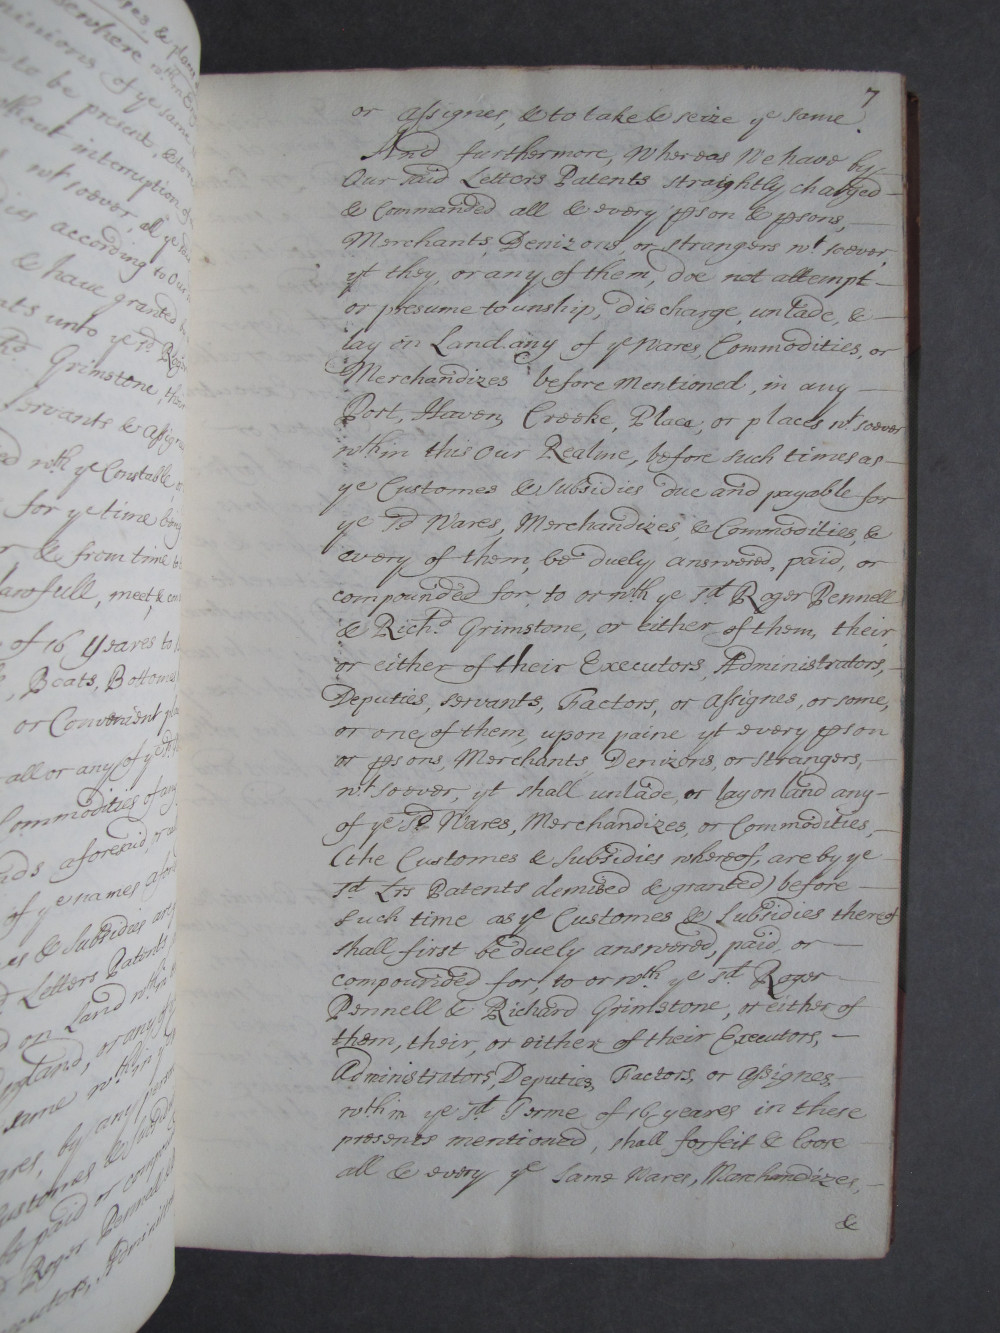 ges, & places
elsewhere wthin Eng
inions of ye same
to be present, &
thout interruption of
wt soever, all ye
according to Our
& have granted
unto ye sd
Grimstone, their
servants & Assignes
wth ye Constable or
for ye time being
& from time to
lawfull, meet, & con
of 16 Yeares to
Boats, Bottomes
or Convenient pla
all or any of ye sd
Commodities of any
aforesaid, or
of ye names afore
& Subsidies are
Letters Patents
on Land wthin
or any of
same wthin ye
by any person
Customes & Subsid
be paid or compou
Roger Pennell &
Administ
7
or Assignes, & to take & seize ye same.
And furthermore, Whereas We have by
Our said Letters Patents straightly charged
& Commanded all & every pson & psons,
Merchants, Denizons, or strangers wt soever,
yt they, or any of them, doe not attempt
or presume to unship, discharge, unlade, &
lay on Land any of ye Wares, Commodities, or
Merchandizes before mentioned, in any
Port, Haven, Creeke, Place, or places wt soever
wthin this Our Realme, before such times as
ye Customes & Subsidies due and payable for
ye sd Wares, Merchandizes, & Commodities, &
every of them, be duely answered, paid, or
compounded for, to or wth ye sd Roger Pennell
& Richd Grimstone, or either of them, their
or either of their Executors, Administrators,
Deputies, servants, Factors, or Assignes, or some,
or one of them, upon paine yt every pson
or psons, Merchants, Denizons, or strangers,
wt soever, yt shall unlade, or lay on land any
of ye sd Wares, Merchandizes, or Commodities,
(the Customes & Subsidies whereof, are by ye
sd Lrs Patents demised & granted) before
such time as ye Customes & Subsidies thereof
shall first be duely answered, paid, or
compounded for, to or wth ye sd Roger
Pennell & Richard Grimstone, or either of
them, their, or either of their Executors,
Administrators, Deputies, Factors, or Assignes,
wthin ye sd Terme of 16 yeares in these
presents mentioned, shall forfeit & loose
all & every ye same Wares, Merchandizes,
&